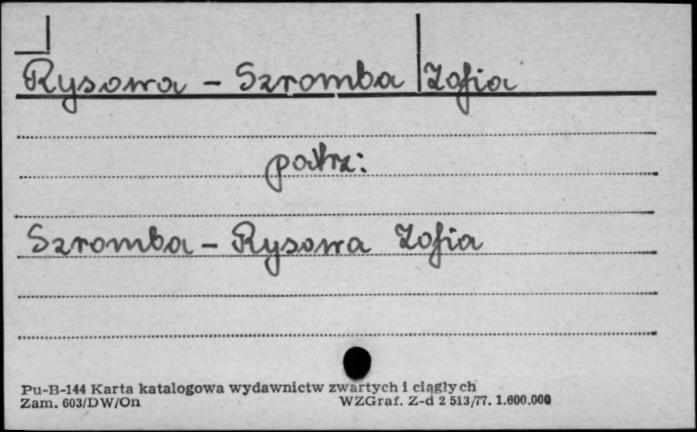 Rysowa - Szromba Zofia
patrz:
Szromba - Rysowa Zofia
Pu-B-144 Karta katalogowa wydawnictw zwartych i ciągłych
Zam. 603/DW/On WZGraf. Z-d 2 513/77. 1.600.000